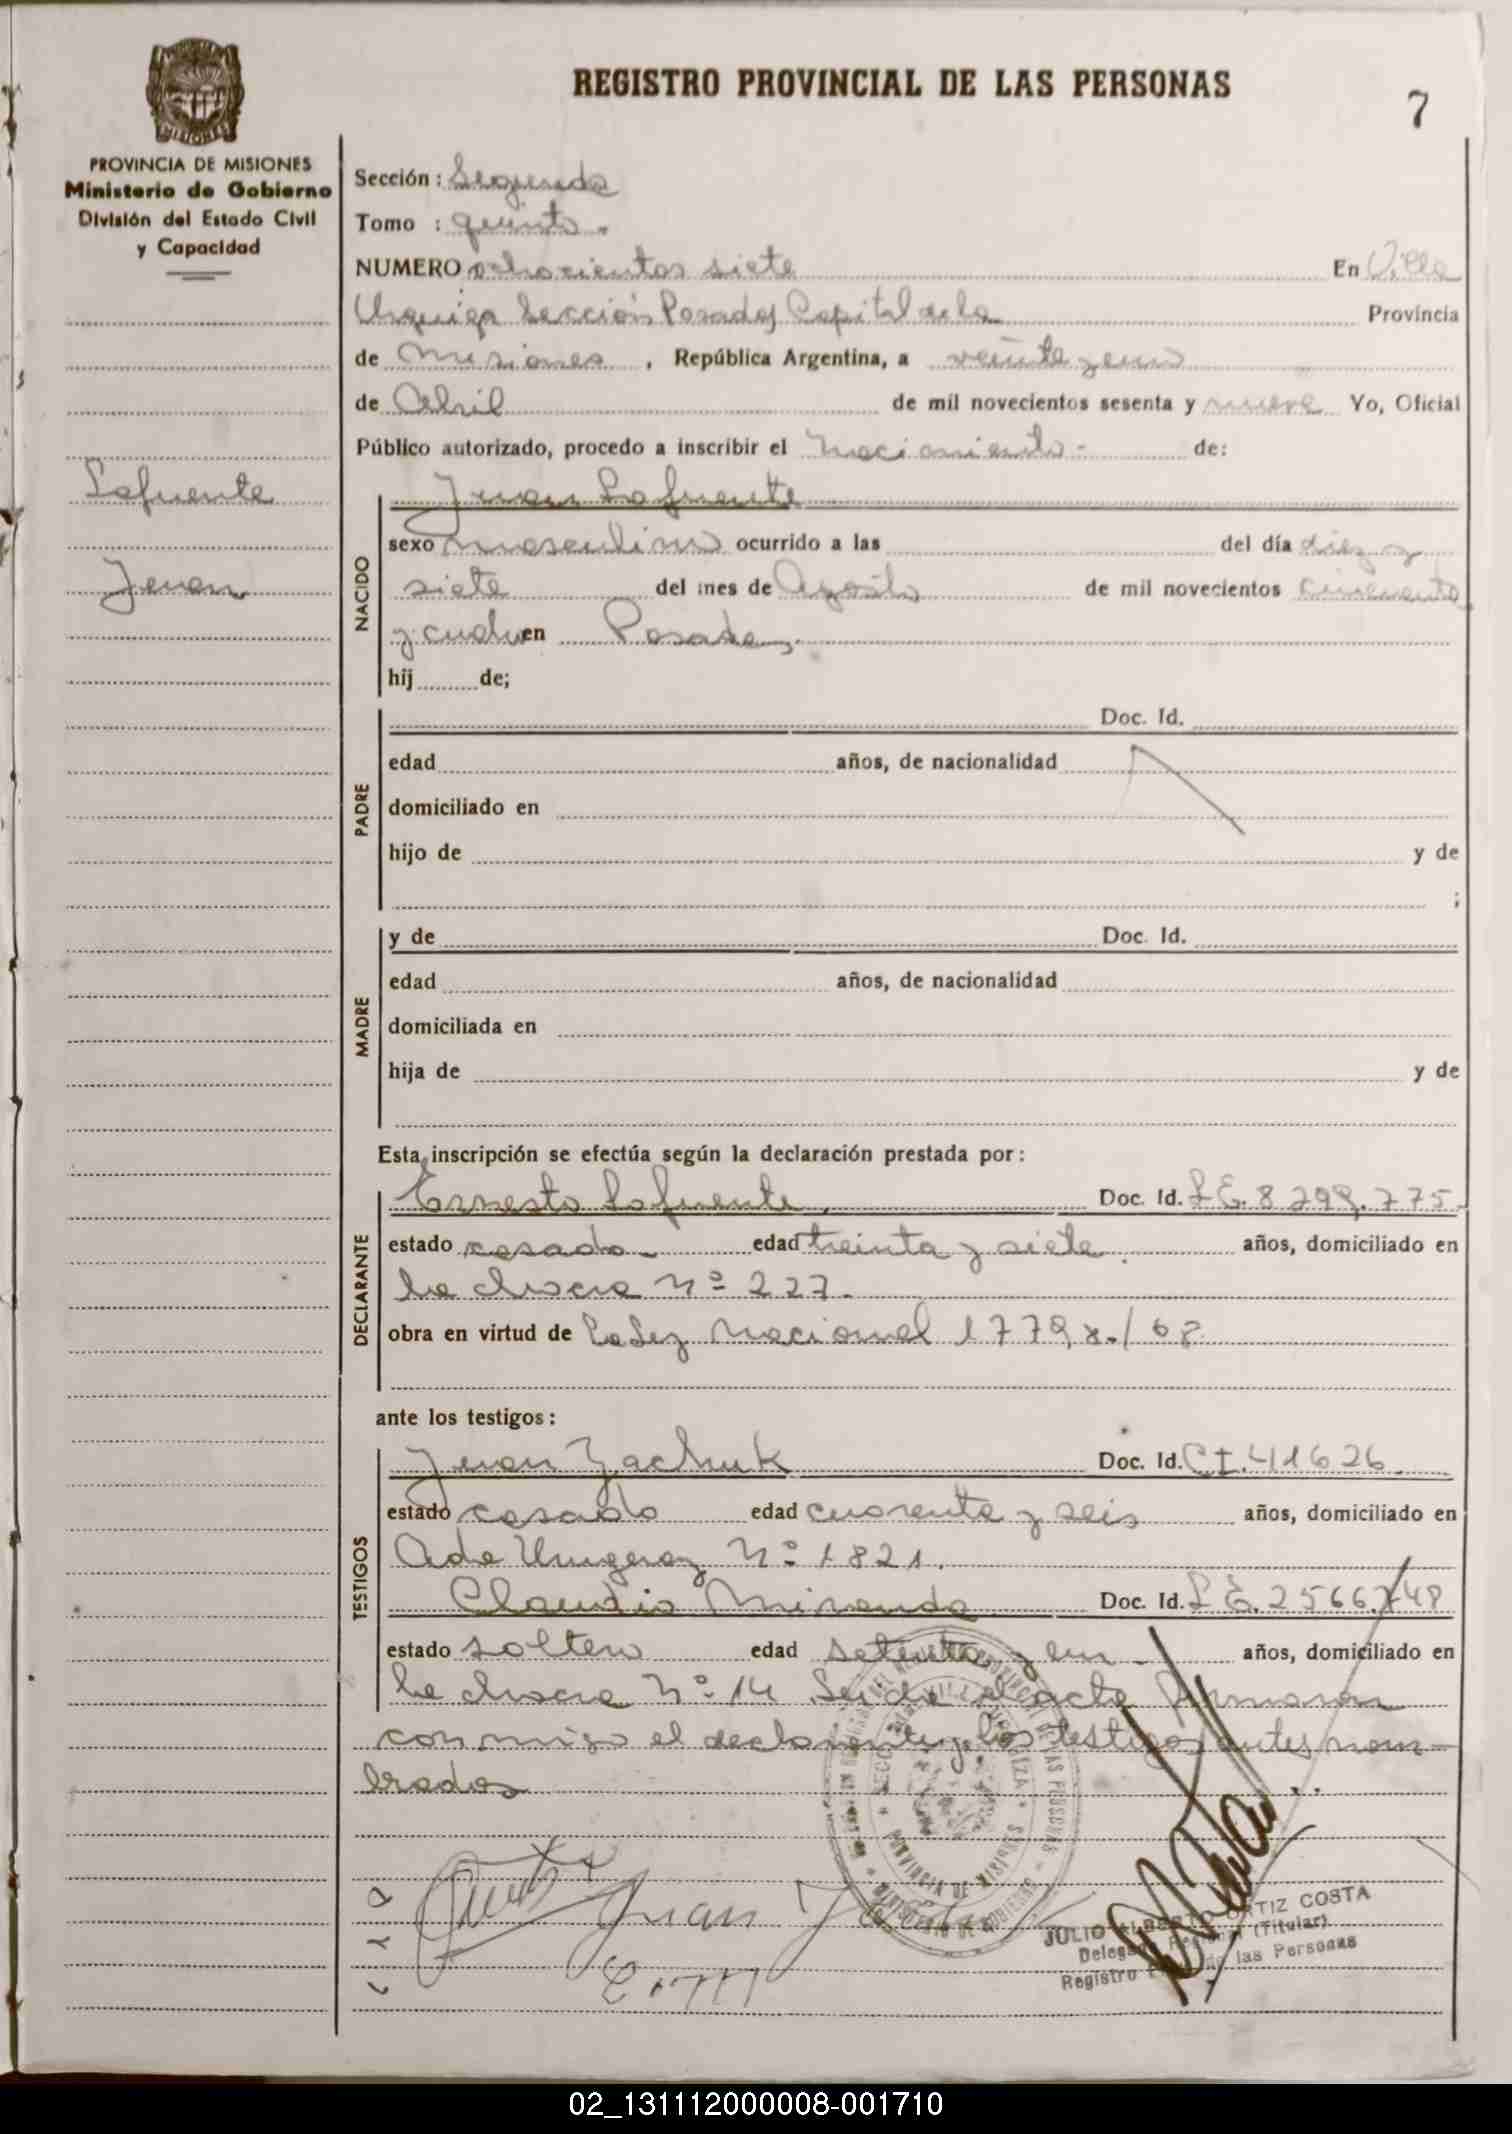 REGISTRO PROVINCIAL DE LAS PERSONAS
7
MISIONES
PROVINCIA DE MISIONES
Ministerio de Gobierno
División del Estado Civil
y Capacidad
Lafuente
Juan
Sección: Segunda
Tomo : quinto.
NUMERO ochocientos siete En Villa
Urquiza Sección Posadas Capital de la Provincia
de Misiones, República Argentina, a veinte y uno
de Abril de mil novecientos sesenta y nueve Yo, Oficial
Público autorizado, procedo a inscribir el Nacimiento - de:
NACIDO
Juan Lafuente
sexo masculino ocurrido a las del día diez y
siete del mes de Agosto de mil novecientos cincuenta
y cuatro en Posadas.
hij de;
PADRE
Doc. Id.
edad años, de nacionalidad
domiciliado en
hijo de y de
;
MADRE
y de Doc. Id.
edad años, de nacionalidad
domiciliada en
hija de y de
Esta inscripción se efectúa según la declaración prestada por:
DECLARANTE
Ernesto Lafuente. Doc. Id. L.E. 8299.775.
estado casado edad treinta y siete. años, domiciliado en
la chacra Nº 227.
obra en virtud de La Ley Nacional 1779/68
ante los testigos:
TESTIGOS
Juan Zachuk Doc. Id. C.I. 41626.
estado casado edad cuarenta y seis años, domiciliado en
Nº 1821.
Claudio Miranda Doc. Id. L.E. 2566.748
estado soltero edad setenta y un años, domiciliado en
la chacra Nº 14 el acta firmaron
conmigo el declarante y los testigos antes nom-
brados
Juan
JULIO ALBERTO ORTIZ COSTA
Delegado Regional (Titular)
Registro de las Personas
02_131112000008-001710